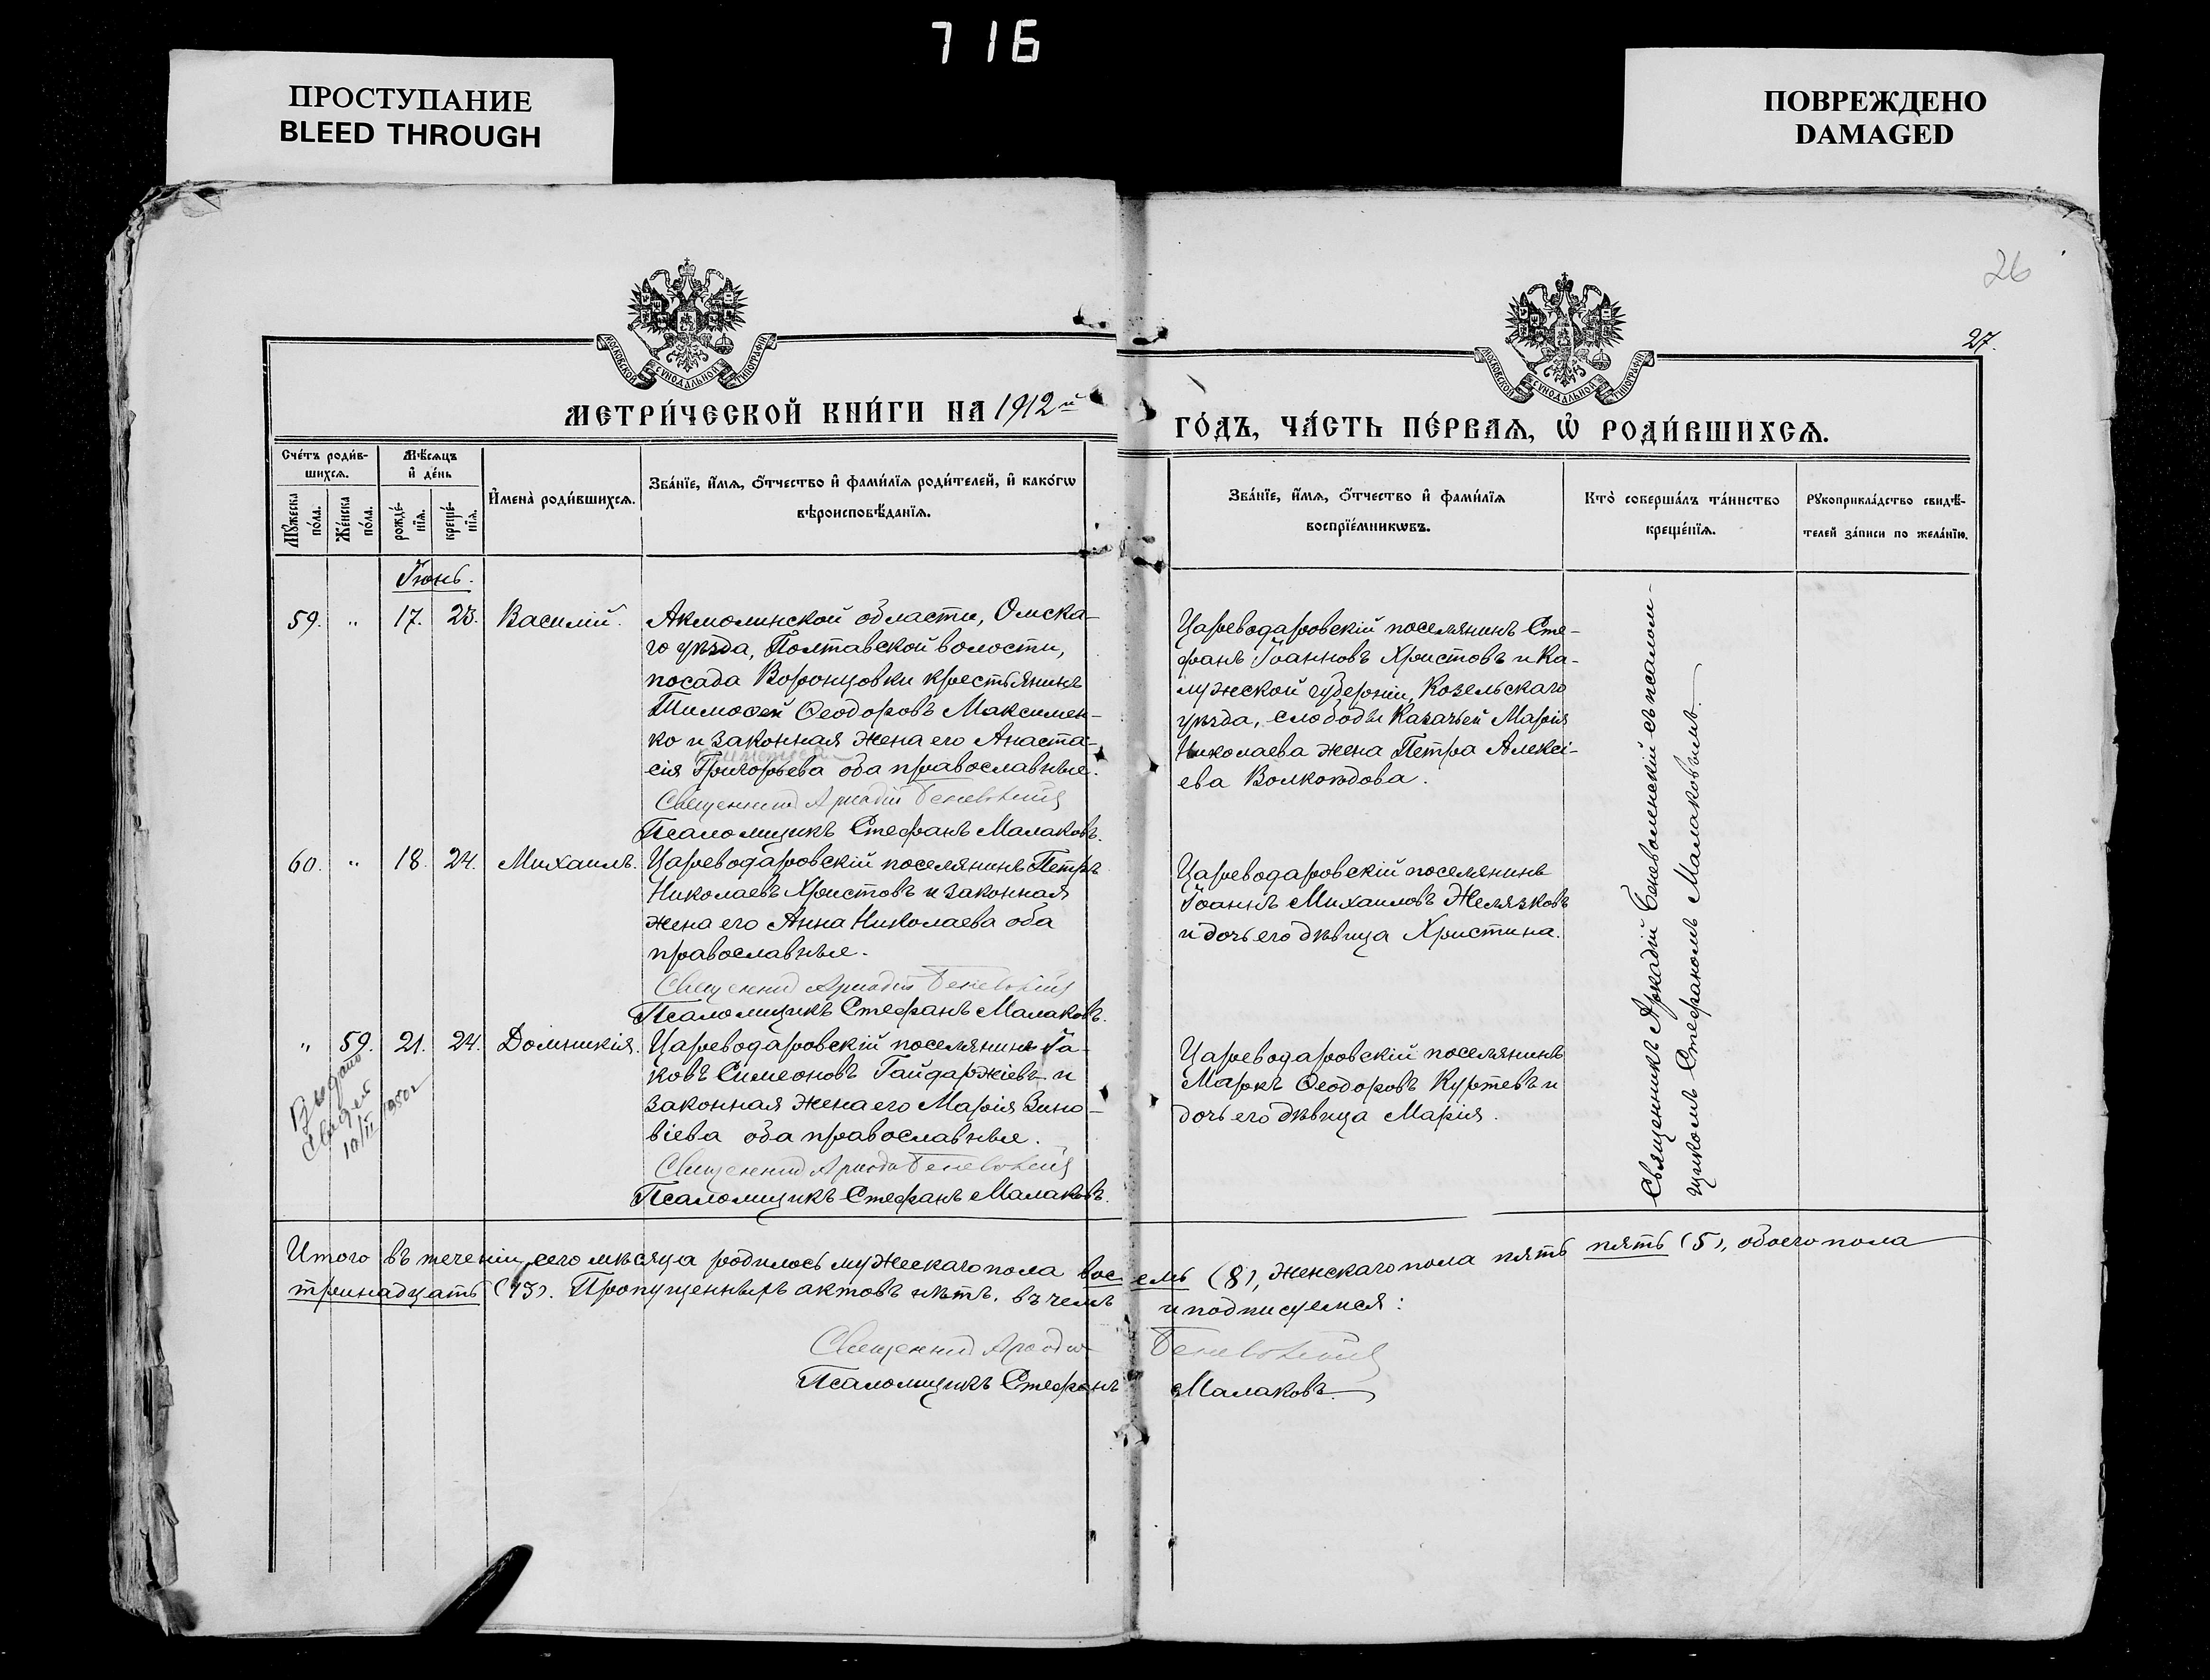 716
ПРОСТУПАНИЕ
BLEED THROUGH
ПОВРЕЖДЕНО
DAMAGED
26
27.
МОСКОВСКОЙ СѴНОДАЛЬНОЙ ТИПОГРАФІИ
МОСКОВСКОЙ СѴНОДАЛЬНОЙ ТИПОГРАФІИ
МЕТРИ́ЧЕСКОЙ КНИ́ГИ НА 1912й
ГО́ДЪ, ЧА́СТЬ ПЕ́РВАѦ, Ѡ҆ РОДИ́ВШИХСѦ.
Сче́тъ роди́в-
шихсѧ.
Мѣ́сѧцъ
и҆ де́нь
Мꙋ́жеска
по́ла.
Же́нска
по́ла.
рожде́-
нїѧ.
креще́-
нїѧ.
И҆мена̀ роди́вшихсѧ.
Зва́нїе, и҆́мѧ, ѻ҆́тчество и҆ фами́лїѧ роди́телей, и҆ како́гѡ
вѣроисповѣ́данїѧ.
Зва́нїе, и҆́мѧ, ѻ҆́тчество и҆ фами́лїѧ
воспрїе́мникѡвъ.
Кто̀ соверша́лъ та́инство
креще́нїѧ.
Рꙋкоприкла́дство свидѣ́-
телей за́писи по жела́нїю.
Іюнь.
59. " 17. 23. Василій.
Акмолинской области, Омска-
го уѣзда, Полтавской волости,
посада Воронцовки крестьянинъ
Тимоѳей Ѳеодоровъ Максимен-
ко и законная жена его Анаста-
сія Григорьева оба православные.
Священник Аркадій Беневоленскій
Псаломщикъ Стефанъ Малаковъ.
Цареводаровскій поселянинъ Сте-
фанъ Іоанновъ Христовъ и Ка-
лужской губерніи, Козельскаго
уѣзда, слободы Казачьей Марія
Николаева жена Петра Алексі-
ева Волкоюдова.
60. " 18. 24. Михаилъ.
Цареводаровскій поселянинъ Петръ
Николаевъ Христовъ и законная
жена его Анна Николаева оба
православные.
Священник Аркадій Беневоленскій
Псаломщикъ Стефанъ Малаковъ.
Цареводаровскій поселянинъ
Іоаннъ Михаиловъ Желязковъ
и дочь его дѣвица Христина.
" 59. 21. 24. Домникія.
Цареводаровскій поселянинъ Іа-
ковъ Симеоновъ Гайдаржіевъ и
законная жена его Марія Зино-
віева оба православные.
Священник Аркадій Беневоленскій
Псаломщикъ Стефанъ Малаковъ.
Цареводаровскій поселянинъ
Маркъ Ѳеодоровъ Куртевъ и
дочь его дѣвица Марія.
Выдано
свидет
10/II 1950г
Священникъ Аркадій Беневоленскій съ псалом-
щикомъ Стефаномъ Малаковымъ.
Итого въ теченіи сего мѣсяца родилось мужескаго пола восемь (8), женскаго пола пять пять (5), обоего пола
тринадцать (13). Пропущенныхъ актовъ нѣтъ. въ чемъ и подписуемся:
Священник Аркадій Беневоленскій
Псаломщикъ Стефанъ Малаковъ.